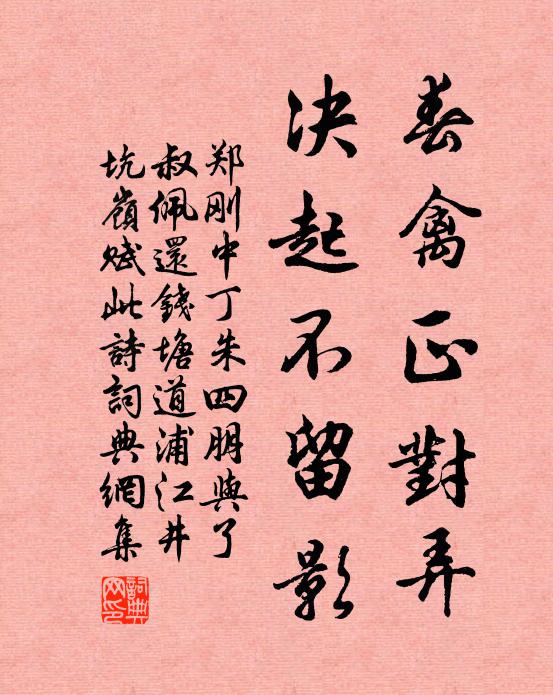 春禽正對弄
决起不留影
郑刚中丁朱四朋與了
叔佩還錢塘道浦江井
坑嶺賦此詩詞典網集
詞典網印